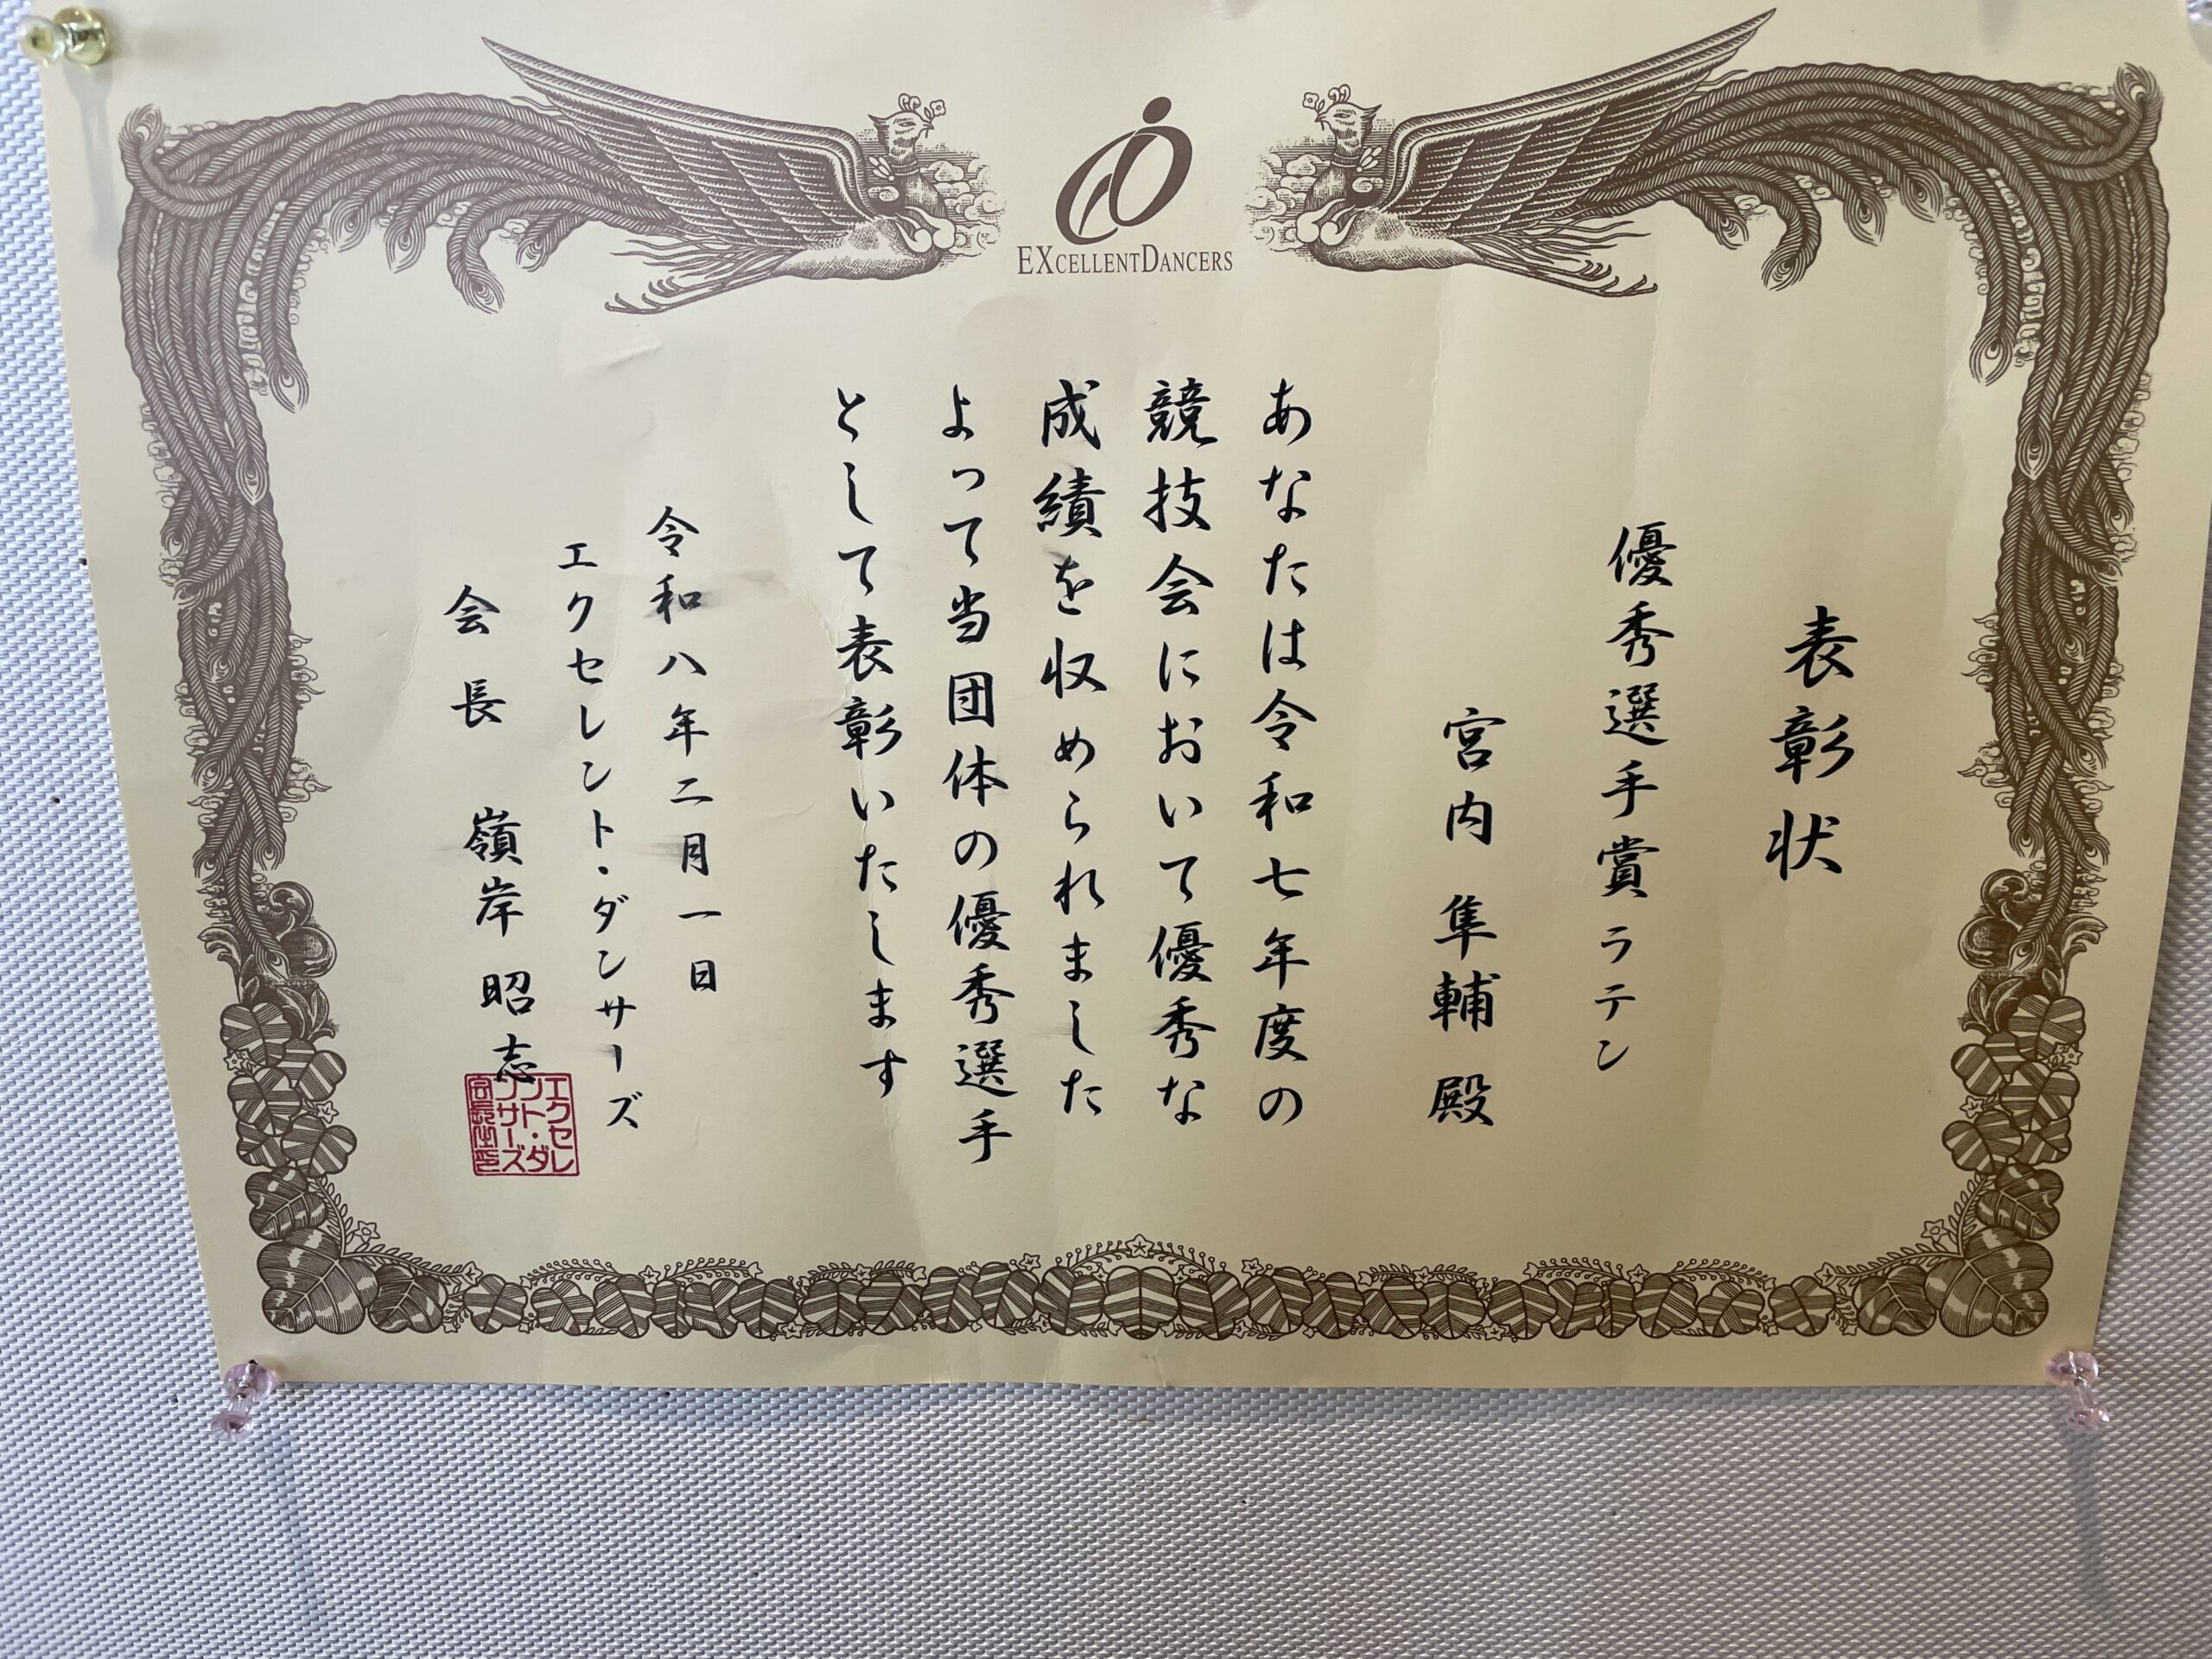 EXCELLENTDANCERS
表彰状
優秀選手賞ラテン
宮内 隼輔 殿
あなたは令和七年度の
競技会において優秀な
成績を収められました
よって当団体の優秀選手
として表彰いたします
令和八年二月一日
エクセレント・ダンサーズ
会長 嶺岸 昭志
エクセレ
ント・ダ
ンサーズ
会長之印